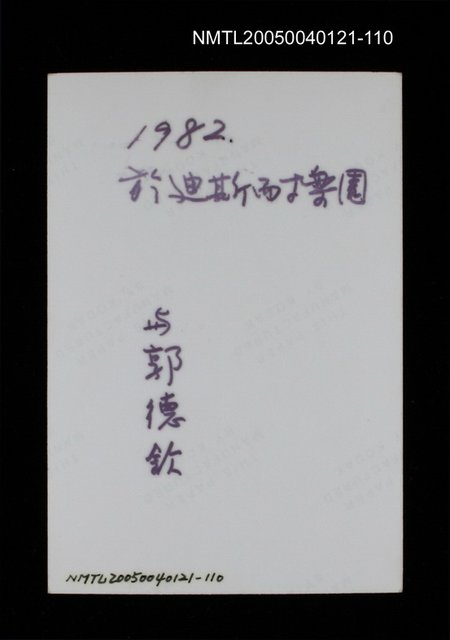 NMTL20050040121-110
1982.
於迪斯而才樂園
与
郭
德
欽
NMTL20050040121-110